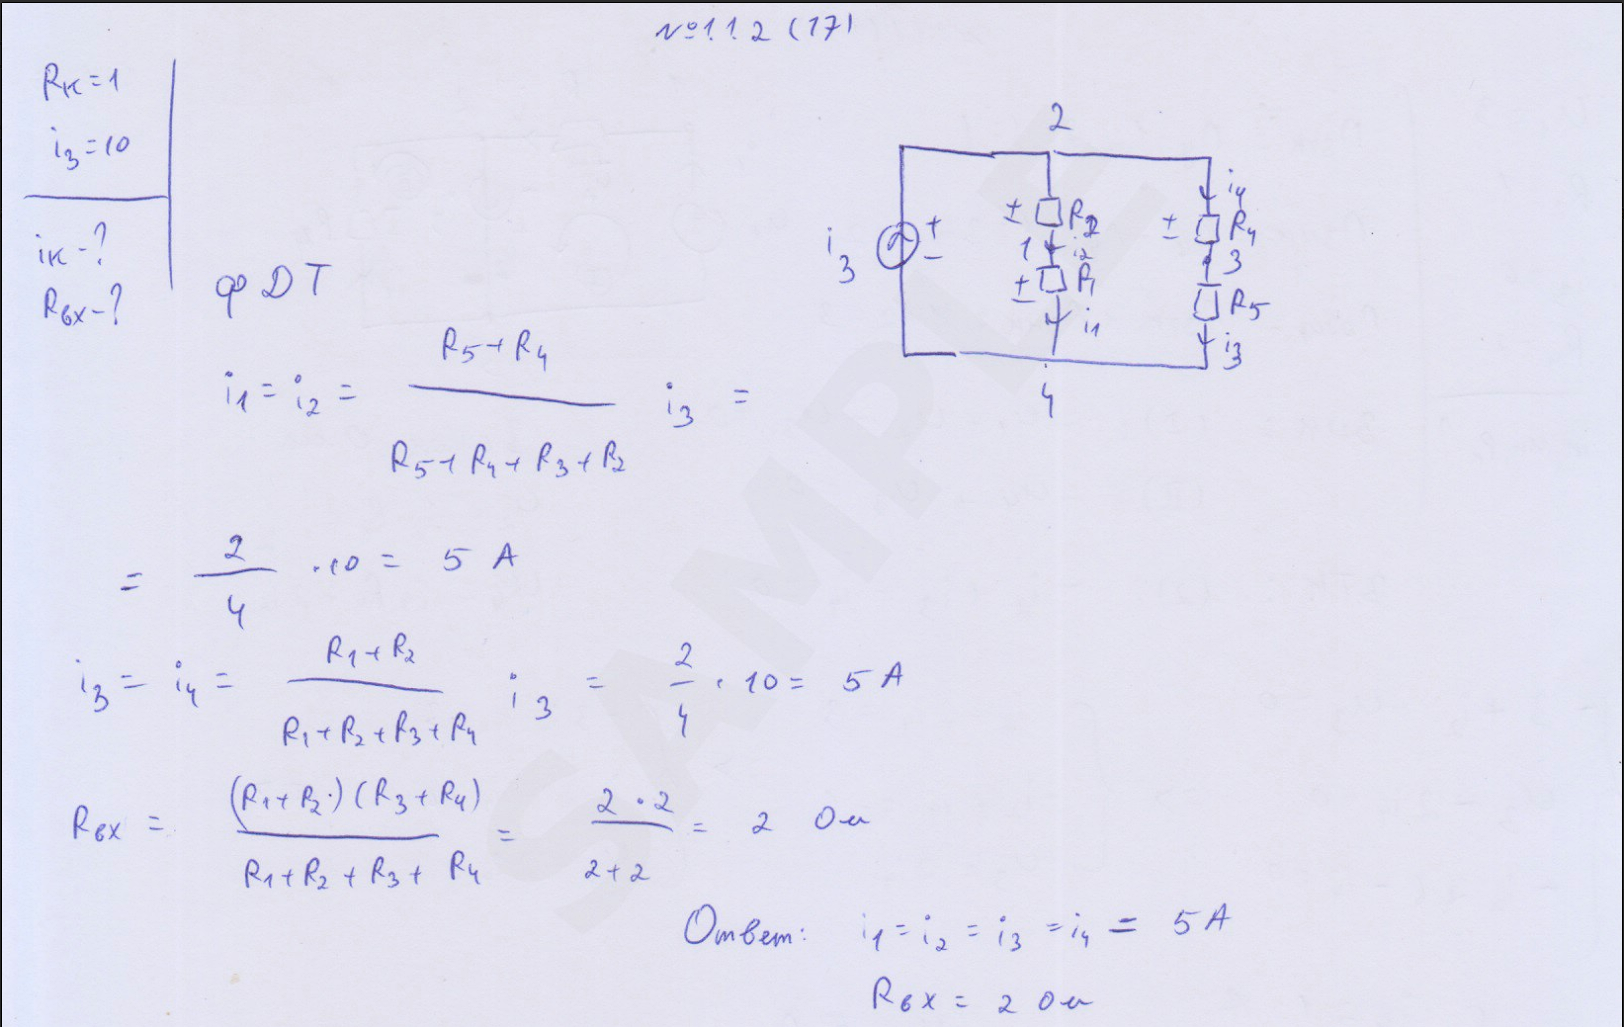 №1.1.2 (17)
Rк=1
i3=10
iк-?
Rвх-?
2
i4
± R2
± R4
i3
+
-
1 i2
3
± R1
R5
i1
i3
4
фДТ
i1 = i2 = (R5+R4)/(R5+R4+R3+R2) i3 =
= 2/4 .10 = 5 А
i3 = i4 = (R1+R2)/(R1+R2+R3+R4) i3 = 2/4 · 10 = 5 А
Rвх = (R1+R2·)(R3+R4)/(R1+R2+R3+R4) = 2·2/2+2 = 2 Ом
Ответ: i1 = i2 = i3 = i4 = 5 А
Rвх = 2 Ом
SAMPLE